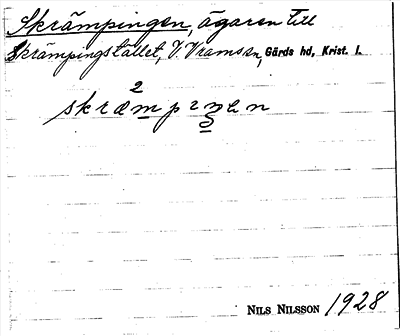 Skrämpingen, ägaren till
Skrämpingstället, V. Vramsån, Gärds hd, Krist. l.
2
skræmpıŋen
NILS NILSSON 1928